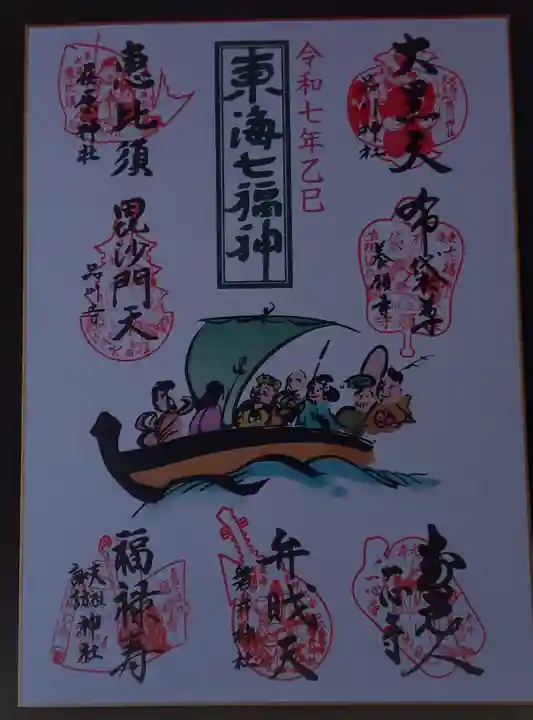 東海七福神
令和七年乙巳
大黒天
品川神社
布袋尊
養願寺
寿老人
一心寺
恵比須
荏原神社
毘沙門天
品川寺
弁財天
磐井神社
福禄寿
天祖
諏訪神社